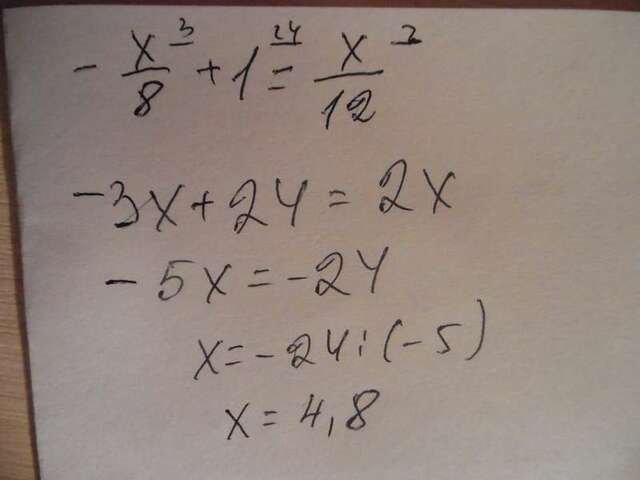 - x/8 ³ + 1 ²⁴ = x/12 ²
-3x+24=2x
-5x=-24
x=-24:(-5)
x=4,8